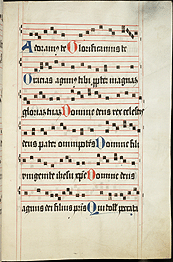 Adoramus te Glorificamus te
Gratias agimus tibi propter magnam
gloriam tuam Domine deus rex celestis
deus pater omnipotens Domine fili
unigenite ihesu xpe Domine deus
agnus dei filius pris Qui tollis peccata